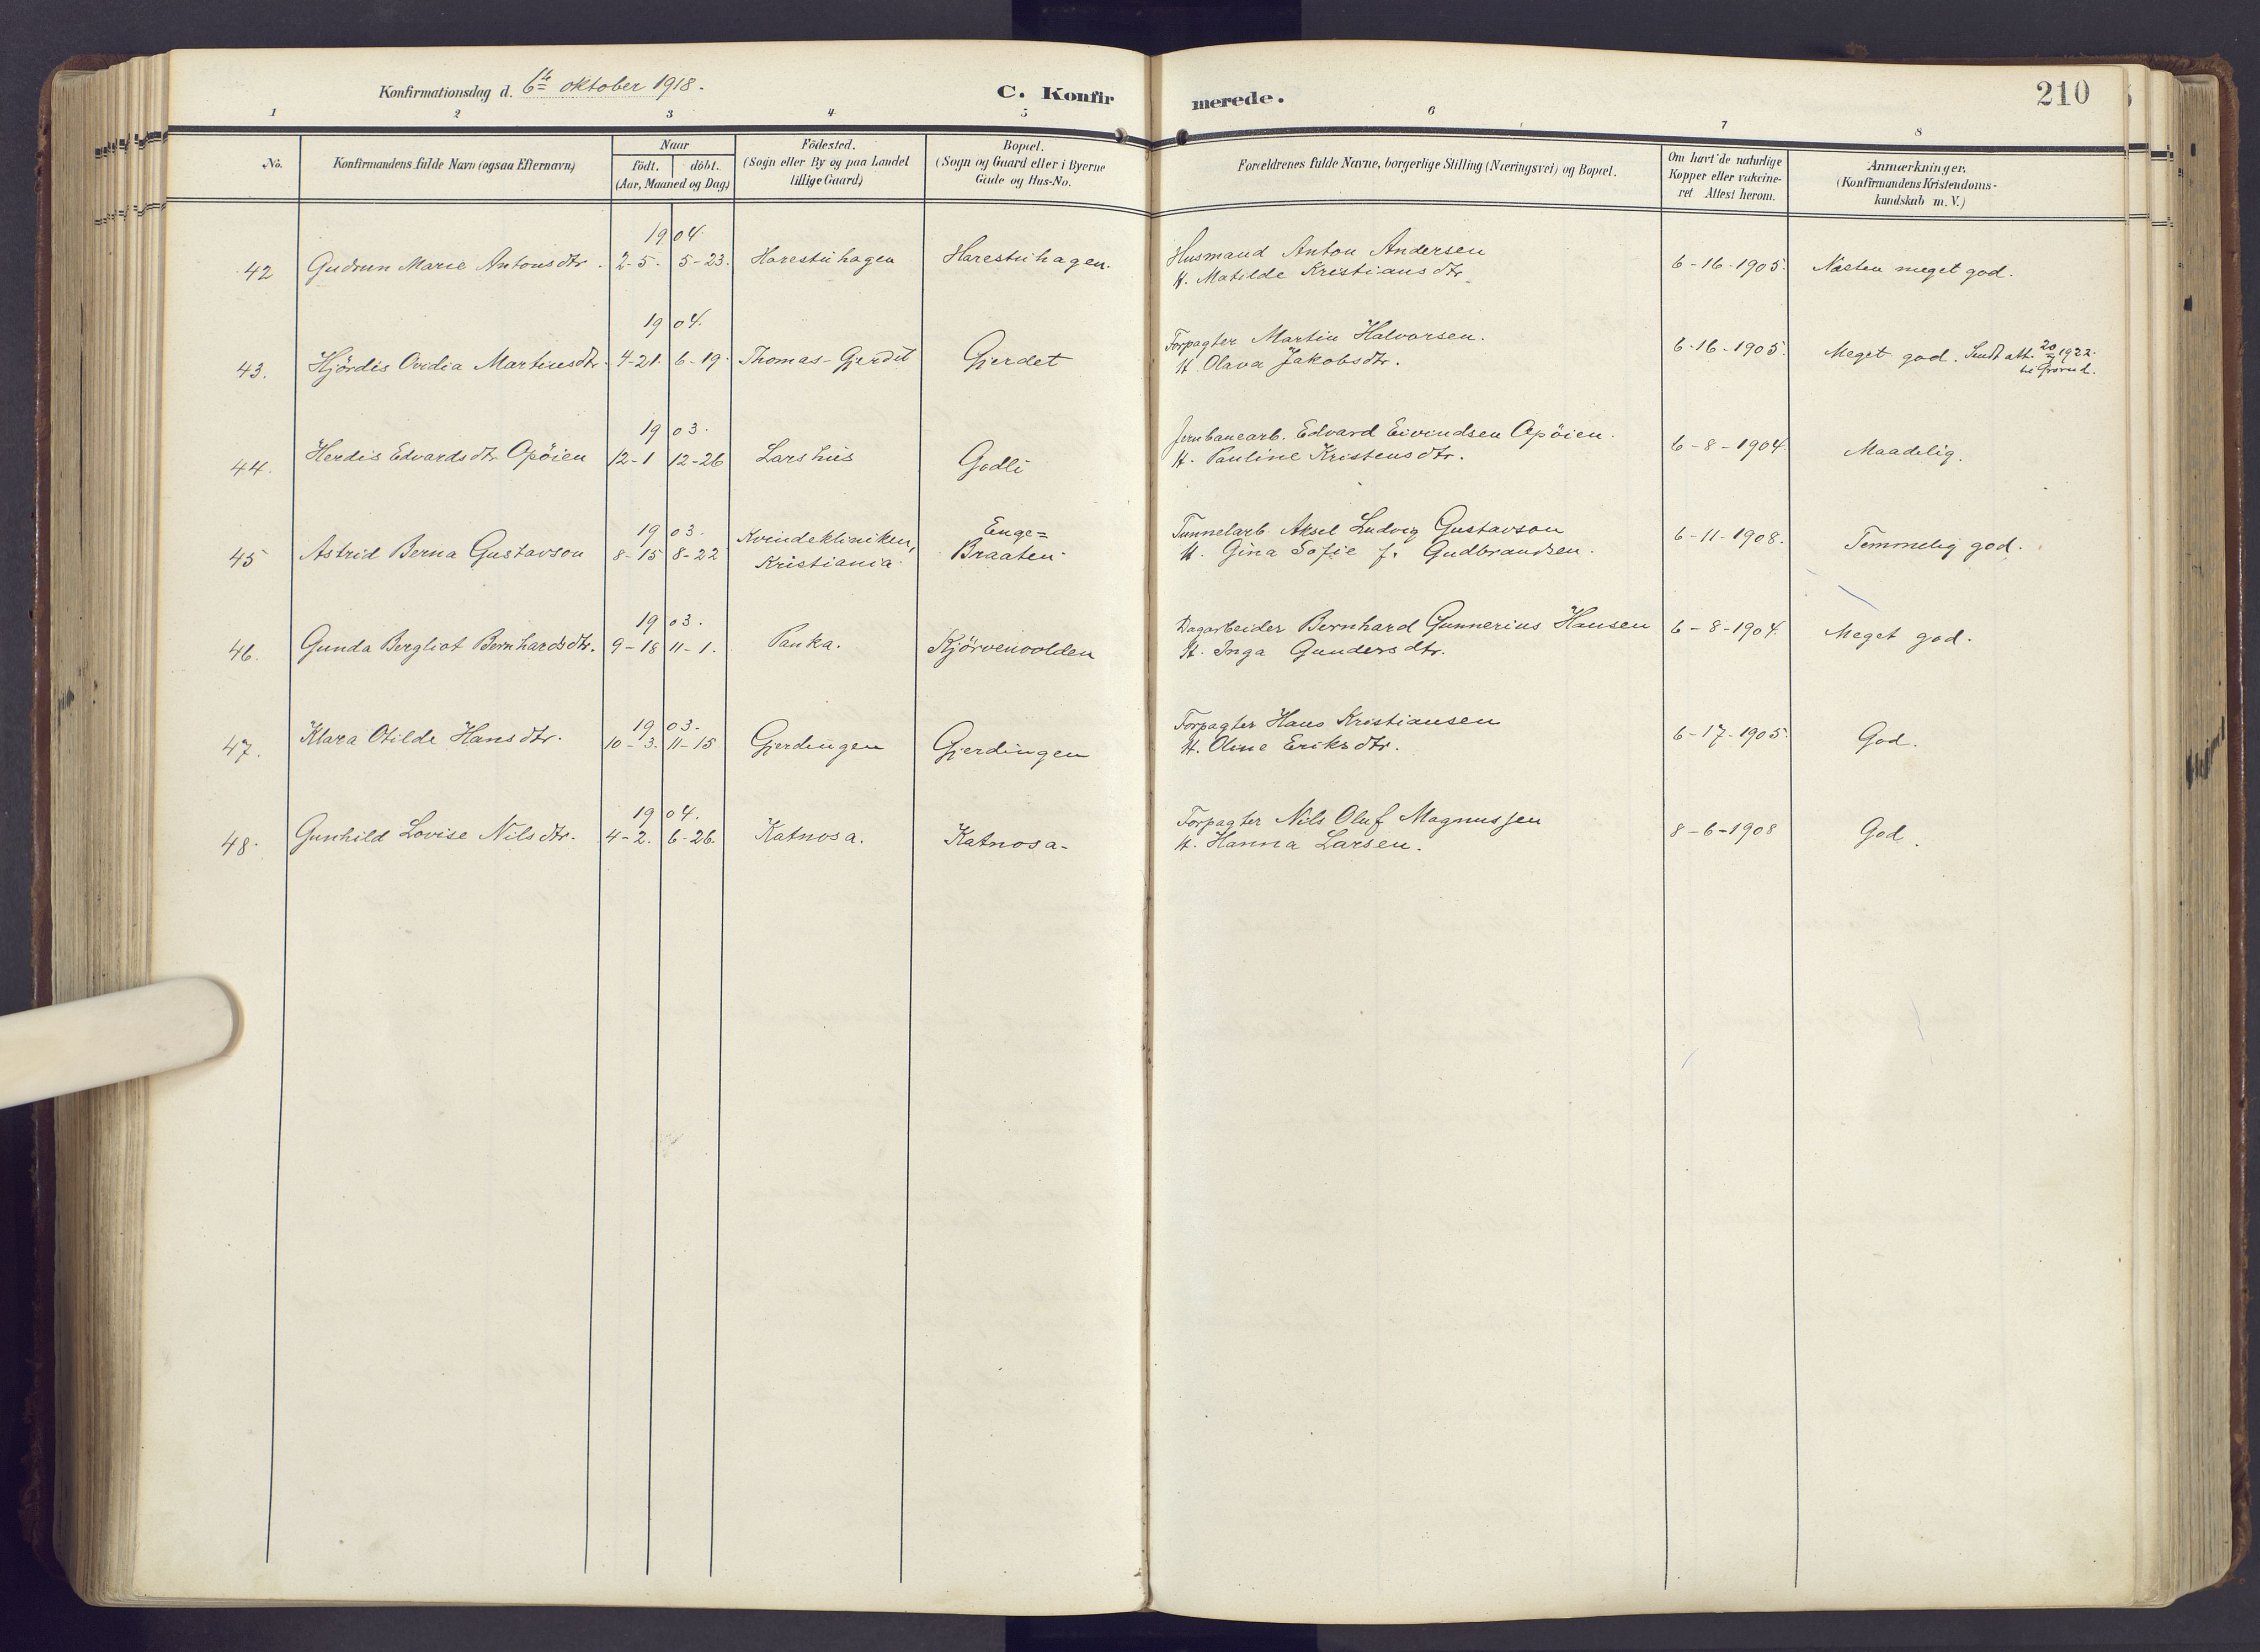 Konfirmationsdag d. 6te oktober 1918.
C. Konfirmerede.
210
1 2 3 4 5 6 7 8
No.
Konfirmandens fulde Navn (ogsaa Efternavn)
Naar
födt. döbt.
(Aar, Maaned og Dag)
Födested.
(Sogn eller By og paa Landet
tillige Gaard)
Bopæl.
(Sogn og Gaard eller i Byerne
Gade og Hus-No.
Forældrenes fulde Navne, borgerlige Stilling (Næringsvei) og Bopæl.
Om havt de naturlige
Kopper eller vakcine-
ret Attest herom.
Anmærkninger.
(Konfirmandens Kristendoms-
kundskab m. V.)
1904.
42 Gudrun Marie Antonsdtr. 2-5. 5-23. Harestuhagen Harestuhagen.
Husmand Anton Andersen
H. Matilde Kristiansdtr.
6-16-1905. Næsten meget god.
1904.
43. Hjördis Ovidia Martinsdtr. 4-21. 6-19. Thomas-Gjerdet Gjerdet
Forpagter Martin Halvorsen.
H. Olava Jakobsdtr.
6-16-1905. Meget god. Sendt att. 20 1922.
til Grorud.
1903.
44. Herdis Edvardsdtr. Opöien 12-1 12-26 Larshus Godli
Jernbanearb. Edvard Eivindsen Opöien.
H. Pauline Kristensdtr.
6-8-1904. Maadelig.
1903.
45 Astrid Berna Gustavson 8-15 8-22 Kvindekliniken,
Kristiania.
Enge=
Braaten.
Tunnelarb Aksel Ludvig Gustavson
H. Gina Sofie f. Gudbrandsen.
6-11-1908. Temmelig god.
1903.
46. Gunda Bergliot Bernhardsdtr. 9-18 11-1. Panka. Kjörvenvolden
Dagarbeider Bernhard Gunnerius Hansen
H. Inga Gundersdtr.
6-8-1904. Meget god.
1903.
47. Klara Otilde Hansdtr. 10-3. 11-15 Gjerdingen Gjerdingen
Forpagter Hans Kristiansen
H. Oline Eriksdtr.
6-17-1905. God.
1904.
48. Gunhild Lovise Nilsdtr. 4-2. 6-26. Katnosa. Katnosa.
Forpagter Nils Oluf Magnussen
H. Hanna Larsen.
8-6-1908 God.